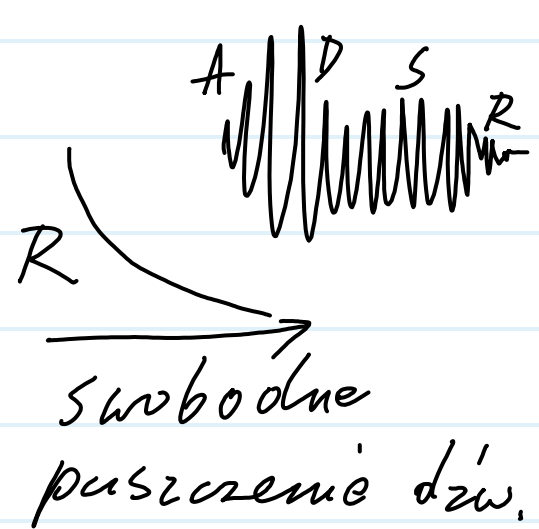 A D S R
R
swobodne
puszczenie dźw.